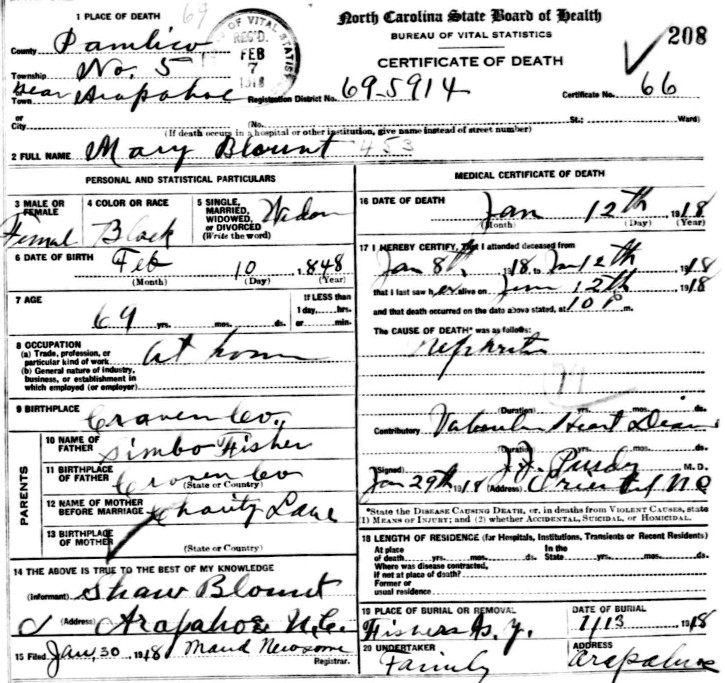 69
North Carolina State Board of Health
BUREAU OF VITAL STATISTICS
CERTIFICATE OF DEATH
208
OF VITAL STATIS
REC'D.
FEB
7
1918
1 PLACE OF DEATH
County Pamlico
Township No. 5
or
near
Town Arapahoe Registration District No. 69-5914 Certificate No. 66
or
City (No. St.; Ward)
(If death occurs in a hospital or other institution, give name instead of street number)
2 FULL NAME Mary Blount 453
PERSONAL AND STATISTICAL PARTICULARS
3 MALE OR FEMALE Femal
4 COLOR OR RACE Black
5 SINGLE, MARRIED, WIDOWED, or DIVORCED (Write the word) Widow
6 DATE OF BIRTH Feb 10 1848
(Month) (Day) (Year)
7 AGE
69 yrs. mos. ds.
If LESS than
1 day, hrs.
or min.
8 OCCUPATION
(a) Trade, profession, or
particular kind of work At home
(b) General nature of industry,
business, or establishment in
which employed (or employer)
9 BIRTHPLACE Craven Co.,
PARENTS
10 NAME OF FATHER Simbo Fisher
11 BIRTHPLACE OF FATHER Craven Co
(State or Country)
12 NAME OF MOTHER BEFORE MARRIAGE Charity Lane
13 BIRTHPLACE OF MOTHER
(State or Country)
14 THE ABOVE IS TRUE TO THE BEST OF MY KNOWLEDGE
(Informant) Shaw Blount
(Address) Arapahoe N.C.
15 Filed Jan, 30, 1918 Maud Newsome
Registrar.
MEDICAL CERTIFICATE OF DEATH
16 DATE OF DEATH
Jan 12th, 1918
(Month) (Day) (Year)
17 I HEREBY CERTIFY, That I attended deceased from
Jan 8th, 1918 to Jan 12th 1918
that I last saw her alive on Jan 12th 1918
and that death occurred on the date above stated, at 10 P m.
The CAUSE OF DEATH* was as follows:
Nephritis
(Duration) yrs. mos. ds.
Contributory Valvular Heart Disease
(Duration) yrs. mos. ds.
(Signed) J. J. Purdy M. D.
Jan 29th 1918 (Address) Oriental NC
*State the DISEASE CAUSING DEATH, or, in deaths from VIOLENT CAUSES, state
(1) MEANS OF INJURY; and (2) whether ACCIDENTAL, SUICIDAL, or HOMICIDAL.
18 LENGTH OF RESIDENCE (for Hospitals, Institutions, Transients or Recent Residents)
At place of death yrs. mos. ds. In the State yrs. mos. ds.
Where was disease contracted,
if not at place of death?
Former or
usual residence
19 PLACE OF BURIAL OR REMOVAL
Fishers G. Y.
DATE OF BURIAL
1/13 1918
20 UNDERTAKER
Family
ADDRESS
Arapahoe